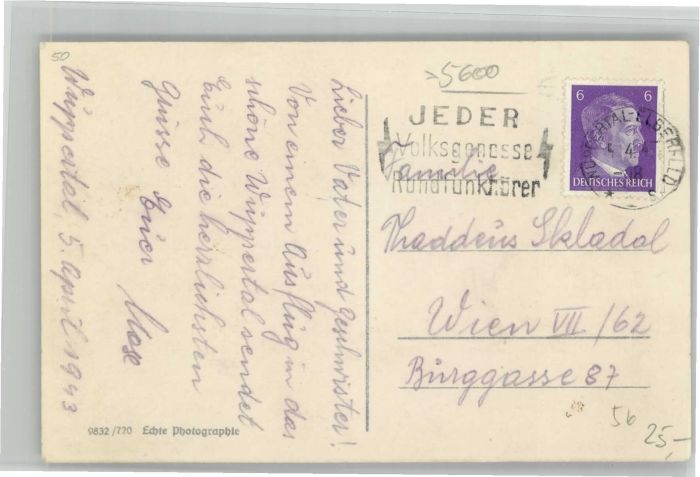 50
Lieber Vater und Geschwister!
Von einem Ausflug in das
schöne Wuppertal sendet
Euch die herzlichsten
Grüsse Euer Maxe
Wuppertal, 5. April 1943
9832/770 Echte Photographie
5600
JEDER
Volksgenosse
Rundfunkhörer
6 6
DEUTSCHES REICH
WUPPERTAL-ELBERFELD
Familie
Thaddeus Skladal
Wien VII/62
Burggasse 87
56
25,-